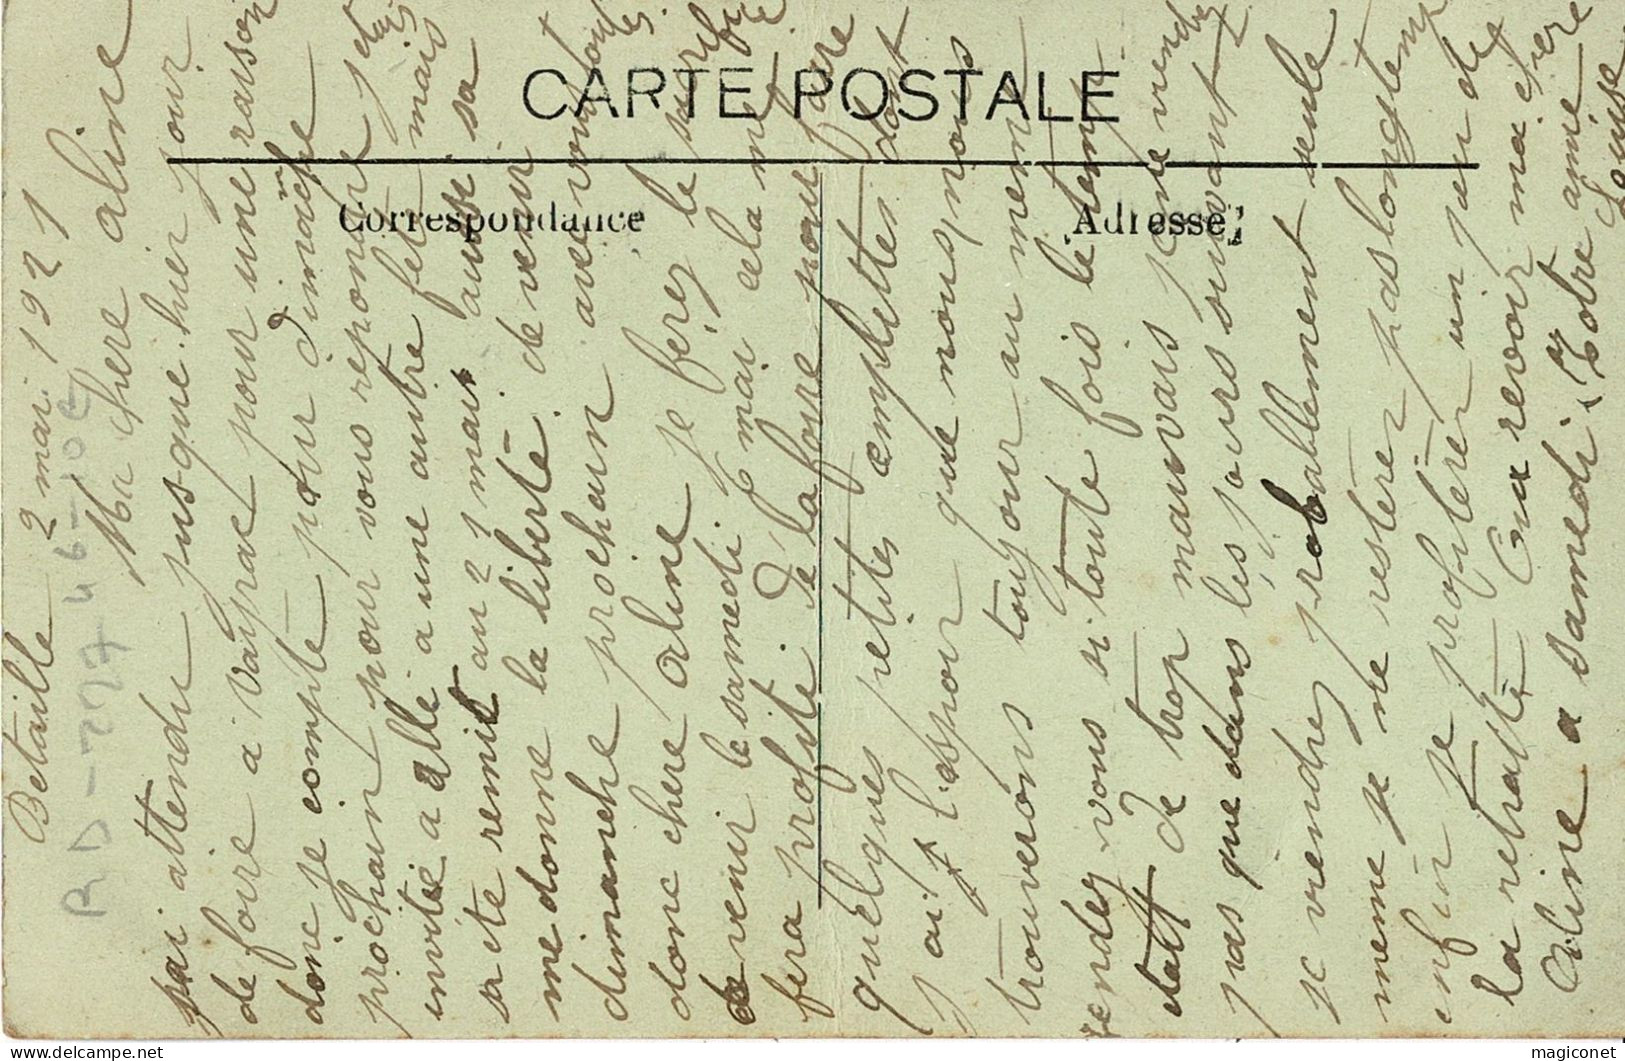 CARTE POSTALE
Correspondance
Adresse
Betaille 2 mai 1921
Ma chere aline
jai attendu jusque hier jour
de foire a vayrac pour une raison
donc je compte pour Dimanche
prochain pour vous reponde jetais
invitée a allé a une autre fet mais
sa ete remit au 21 mai aussi sa
me donne la liberté de venir
dimanche prochain avec vous toutes
donc chere aline je ferez le
de venir le samedi 6 mai cela me
fera profité de la foire pour faire
quelques petites emplettes dont
j'ai l'espoir que nous nous
trouverons toujour au meme
rendez vous si toute fois le temp
etait de trop mauvais je ne viendrez
pas que dans les jours suivant
je viendrez probablement seule
meme je ne restér pas longtemp
enfin je profitèré un peu de
la retraitte Au revoir ma chere
Aline a samedi Votre amie
Louise
RD-2217-46-10€
magiconet